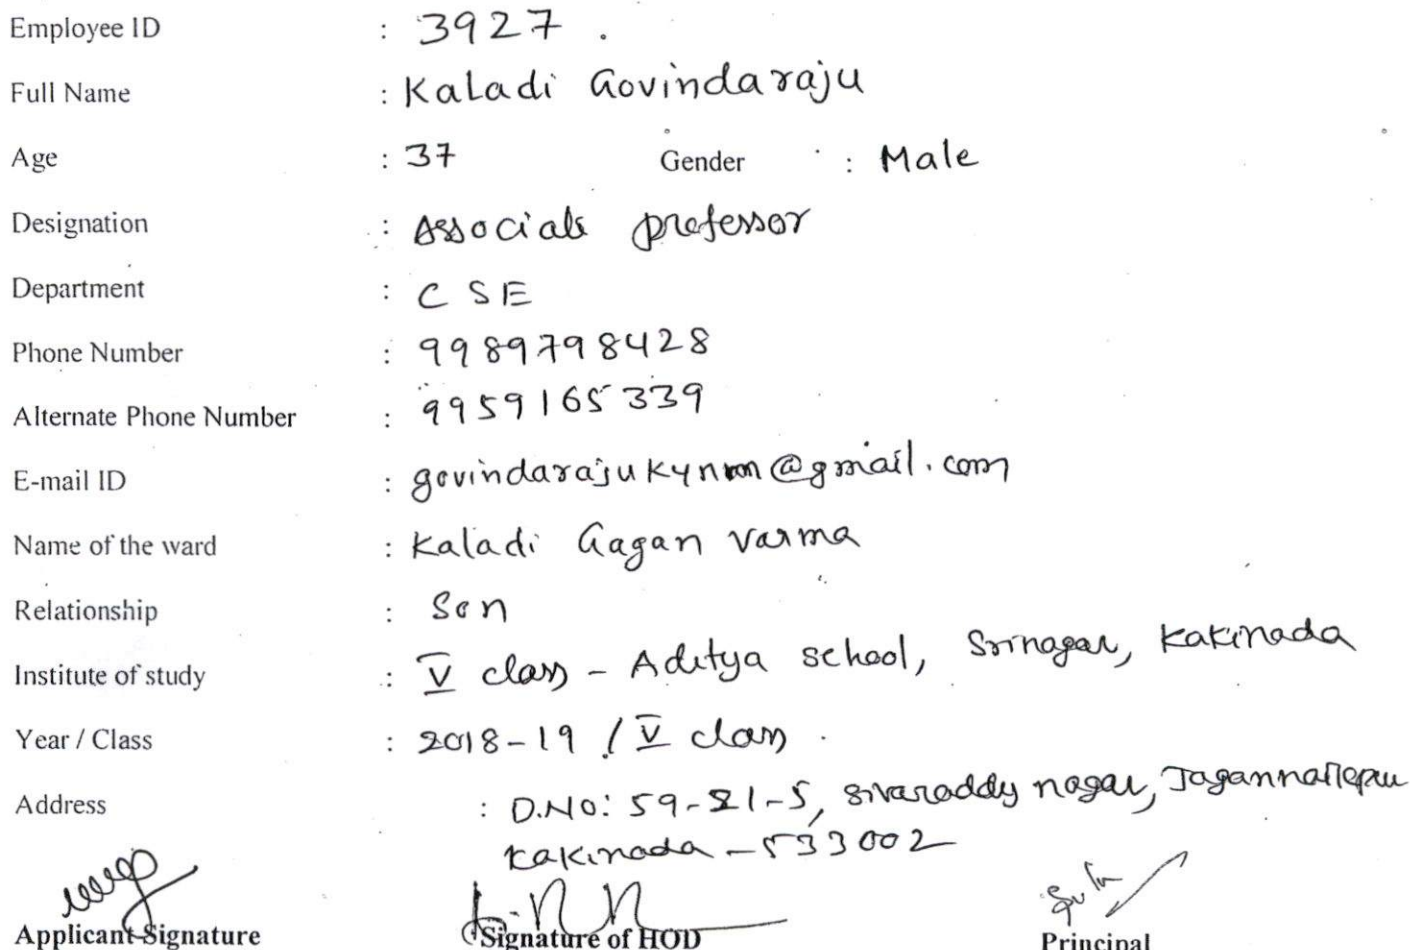 Employee ID : 3927 .
Full Name : Kaladi Govindaraju
Age : 37 Gender : Male
Designation : Associate professor
Department : C S E
Phone Number : 9989798428
Alternate Phone Number : 9959165339
E-mail ID : @gmail.com
Name of the ward : Kaladi Gagan varma
Relationship : Son
Institute of study : V class - Aditya school, Srinagar, Kakinada
Year / Class : 2018-19 / V class .
Address : D.NO: 59-21-5, sivaraddy nagar,
Kakinada - 533002
Applicant Signature Signature of HOD Principal